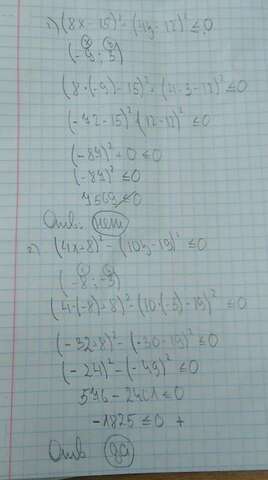 1) (8x-15)²-(4y-12)² ≤ 0
x y
(-9; 3)
(8·(-9)-15)²-(4·3-12)² ≤ 0
(-72-15)²-(12-12)² ≤ 0
(-87)²-0 ≤ 0
(-87)² ≤ 0
7569 ≤ 0
Отв: нет
2) (4x+8)²-(10y-19)² ≤ 0
x y
(-8; -3)
(4·(-8)+8)²-(10·(-3)-19)² ≤ 0
(-32+8)²-(-30-19)² ≤ 0
(-24)²-(-49)² ≤ 0
576-2401 ≤ 0
-1825 ≤ 0 +
Отв да